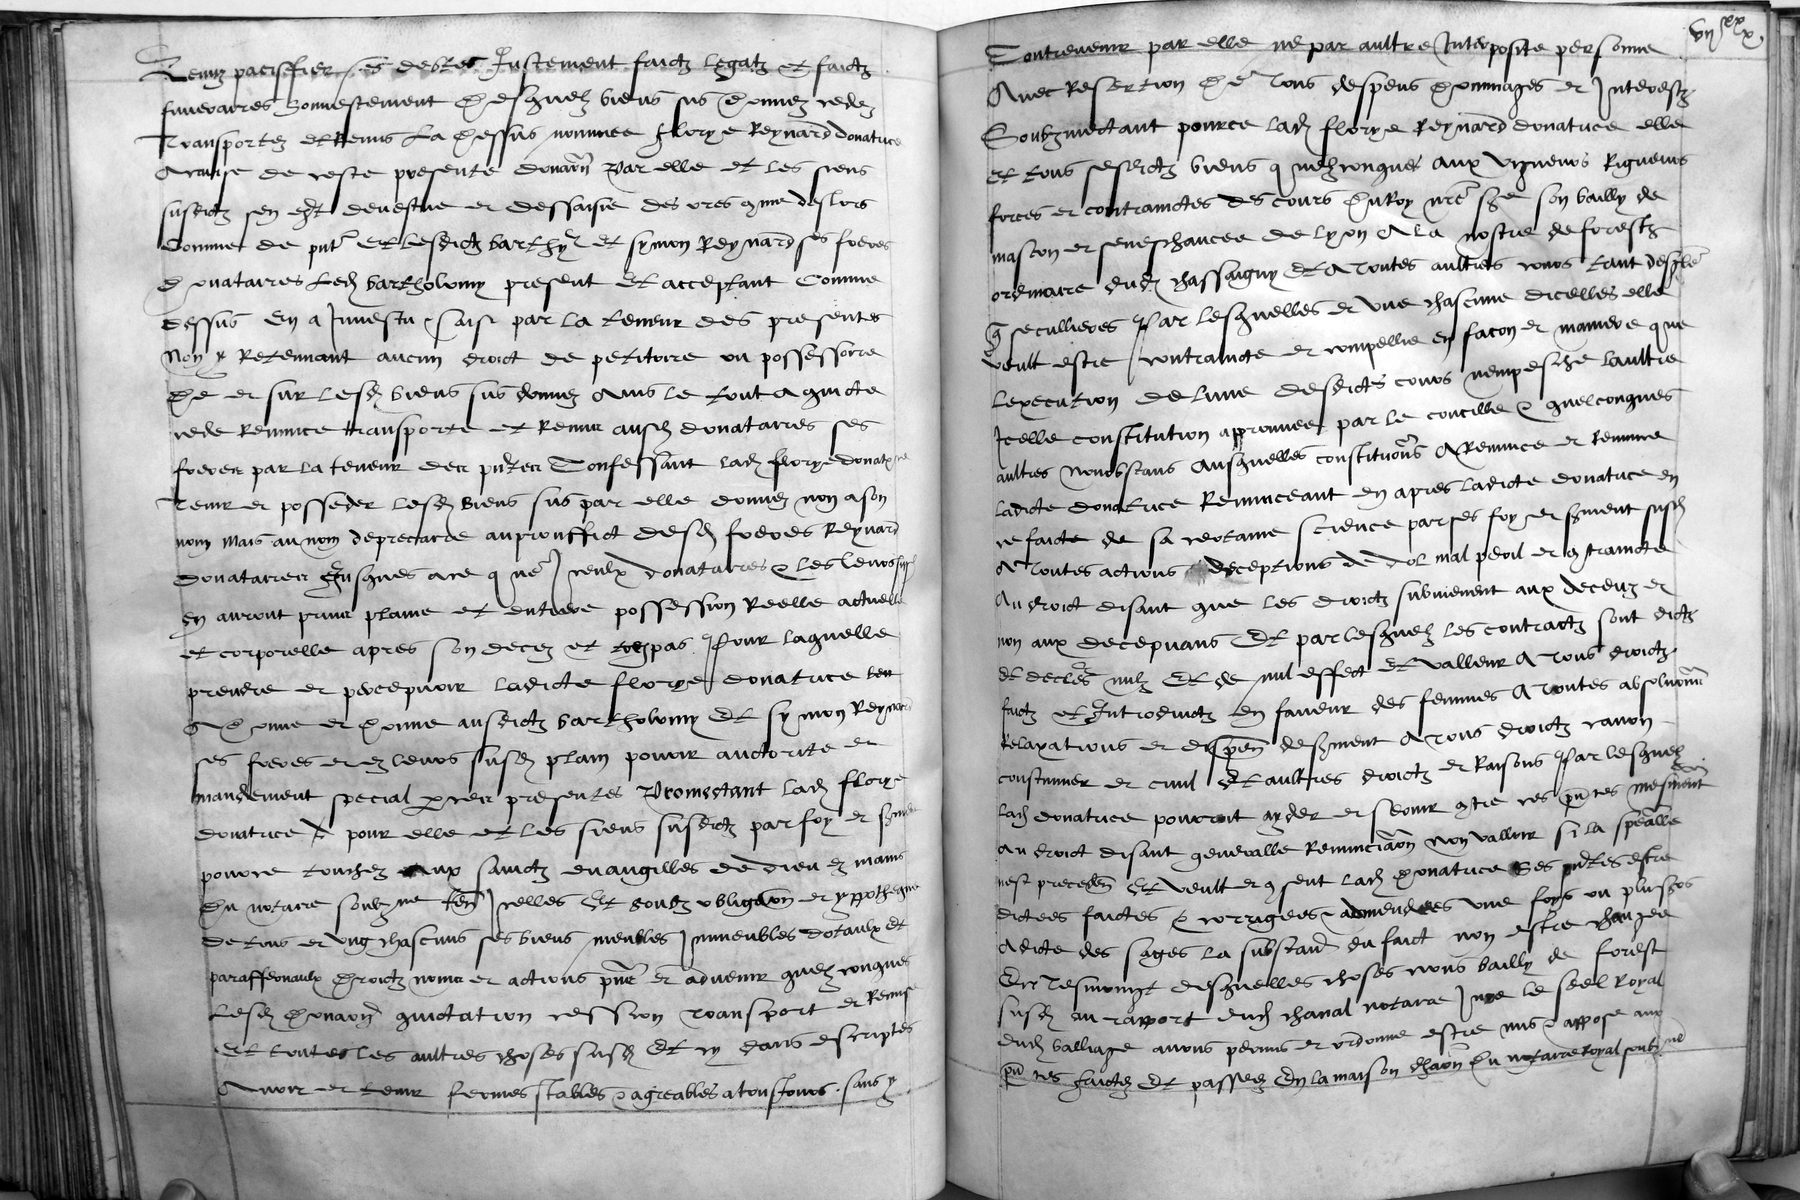 Tenuz paciffier ses debtes Justement faictz legatz et faictz
funerares honnestement Desquelz biens sus donnez cedez
Transportez et Remis La dessus nommee florye Reynard donatrice
A cause de ceste presente donaōn Par elle et les siens
susdictz sen est devestue et dessaisie des ores cōme des lors
Comme de pñt Et lesdictz barthy et symon Reynard ses freres
Donataires Led bartholomy present et acceptant Comme
dessus en a Investu saisi par la teneur des presentes
Non y Retennant aucun droict de petitoire ou possessoire
De et sur lesd biens sus donnez Ains le tout a quicte
cede Renunce transporte et Remis ausd donataires ses
freres par la teneur des pñtes Confessant lad florye donatrice
Tenir et posseder lesd biens sus par elle donnez non a son
nom mais au nom de precaire au prouffict desd freres Reynard
donataires Jusques a ce que Iceulx donataires & les leurs sus
en auront prins plaine et entiere possession Reelle actuelle
et corporelle apres son decez et trespas Pour laquelle
prendre et percepvoir ladicte florye donatrice
A donne et donne ausdictz bartholomy Et symon Reynard
ses freres et es leurs susd plain povoir auctorite et
mandement special par ces presentes Promectant lad florye
donatrice pour elle et les siens susdictz par foy et sment
pource touchez aux sainctz evangilles de dieu es mains
Du notaire soubz ne Icelles Et soubz obligaōn et yppotheque
de tous et ung chascuns ses biens meubles Immeubles dotaulx et
paraffernaulx Droictz noms et actions pñt et advenir quelzconques
Lesd donaōn quictation cession transport et Remise
Et toutes les aultres choses susd Et cy dans escriptes
Avoir et tenir fermes stables & agreables a tousjours sans y
vii xx x
Contrevenir par elle ne par aultre Interposite personne
Avec Reffection De tous despens Dommages et Interestz
Soubzmectant pource lad florye Reynard donatrice elle
et tous sesdictz biens quelzconques aux vigueurs Rigueurs
forces et contrainctes des cours Du Roy nrē sre son bailly de
mascon et seneschaucee de lyon A la nostre de forestz
ordinaire dud chassaigny Et A toutes aultres cours tant desglē
que seculieres Par lesquelles et une chascune dicelles elle
veult estre contraincte et compellie en facon et maniere que
lexecution de lune desdictes cours nempesche laultre
Icelle constitution approuvee par le concille & quelconques
aultres nonobstans Ausquelles constituōns A Renunce et Renunce
ladicte donatrice Renunceant en apres ladicte donatrice en
ce faicte de sa certaine science par ses foy et sment susd
A toutes actions deceptions de dol mal peril et contraincte
Au droict disant que les droictz subviennent aux deceuz et
non aux decepvans Et par lesquelz les contractz sont dictz
et declerēs nulz Et de nul effect Et valleur A tous droictz
faictz et Introduictz en faveur des femmes A toutes absoluōns
Relaxations et dispen de sment A tous droictz canon
coustumier et civil Et aultres droictz et Raisons Par lesquelz
lad donatrice pourroit ayder et secourir contre ces pñtes mesment
Au droict disant generalle Renunciaōn non valloir si la specialle
nest precedēn Et veult et consent lad Donatrice Ses pñtes estre
dictees faictes & corrigees amendees une foys ou plusrs
A dicte des sages la substance du faict non estre changee
En Tesmoingt desquelles choses nous bailly de forest
susd au rapport dud chanal notaire Jure le seel Royal
dud balliage avons permis et ordonne estre mis & appose aux
pñtes faictes Et passees En la maison Du notaire royal soubz ne